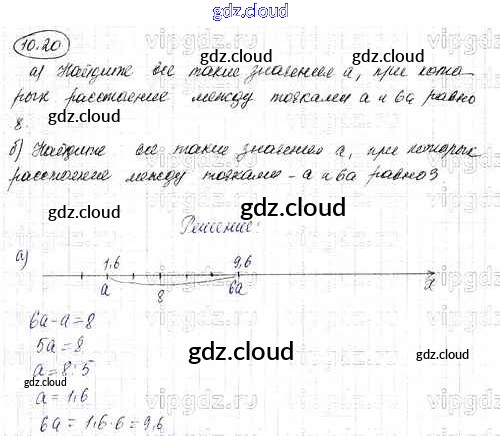 gdz.cloud
10.20
gdz.cloud
а) Найдите все такие значения а, при кото-
рых расстояние между точками а и 6а равно
8.
б) Найдите все такие значения а, при которых
расстояние между точками -а и 6а равно 3
gdz.cloud
gdz.cloud
Решение:
а)
1,6 9,6
а 8 6а x
6а-а=8
5а=8
а=8:5
а=1,6
6а=1,6·6=9,6
gdz.cloud
gdz.cloud
gdz.cloud
vipgdz.com